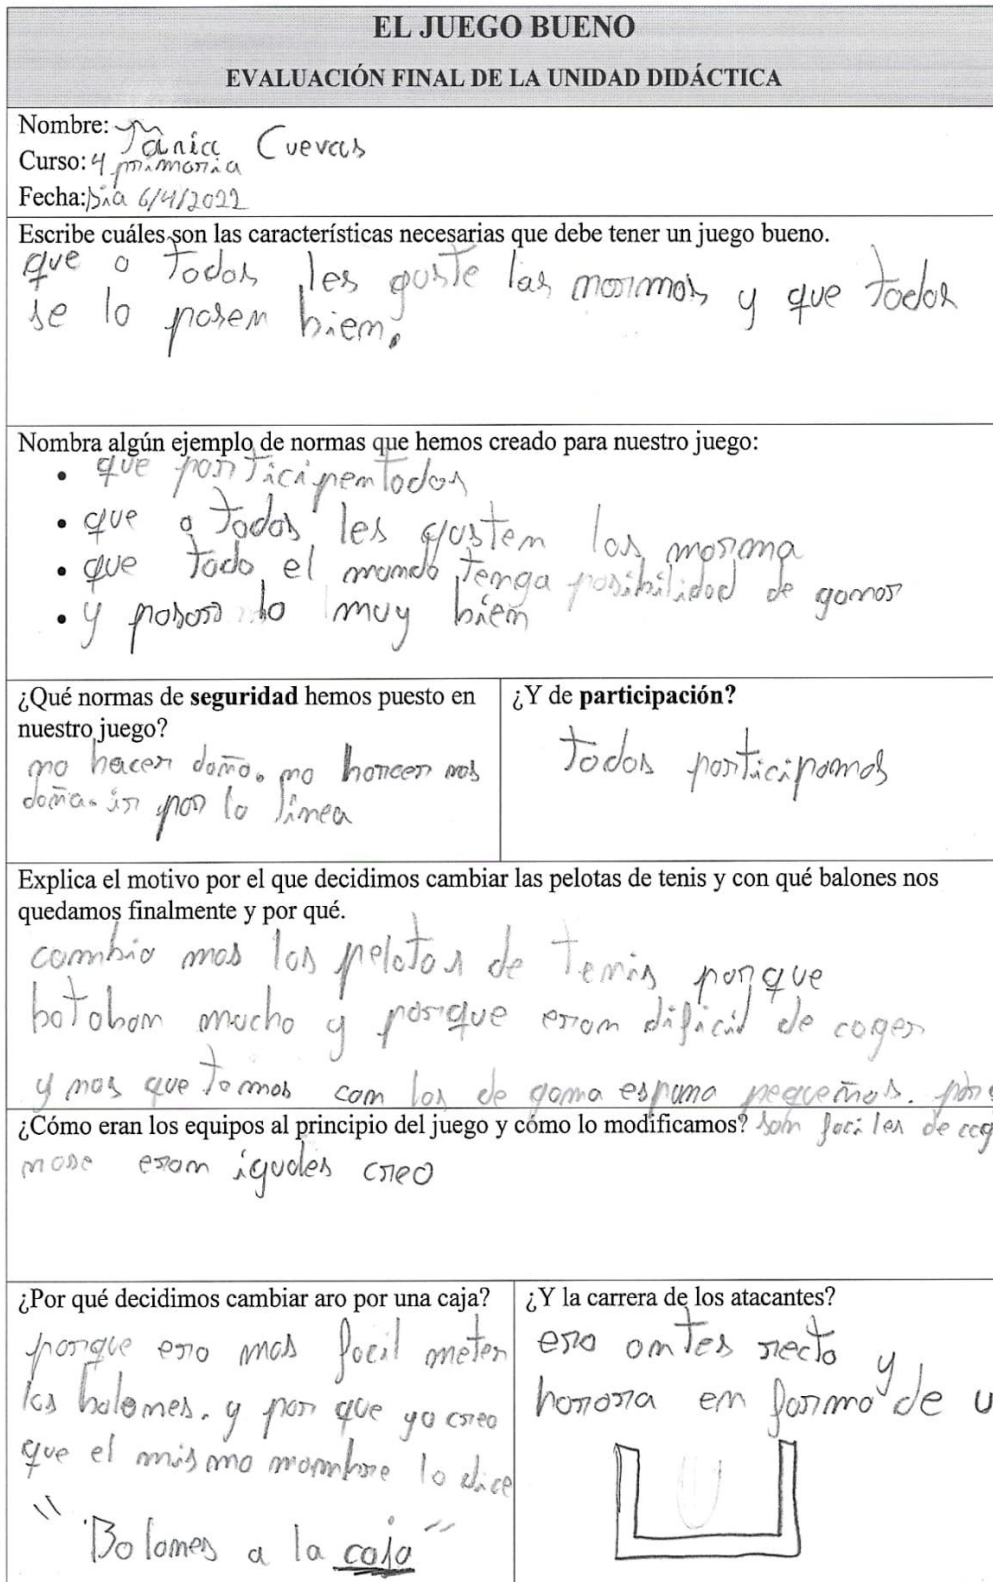 EL JUEGO BUENO
EVALUACIÓN FINAL DE LA UNIDAD DIDÁCTICA
Nombre: Tània Cuevas
Curso: 4 primaria
Fecha: Dia 6/4/2022
Escribe cuáles son las características necesarias que debe tener un juego bueno.
que a todos les guste las normas y que todos
se lo pasen bien.
Nombra algún ejemplo de normas que hemos creado para nuestro juego:
• que participen todos
• que a todos les gusten las norma
• que todo el mundo tenga posibilidad de ganar
• y pasar lo muy bien
¿Qué normas de seguridad hemos puesto en
nuestro juego?
no hacer daño. no harcer nos
daña. ir por la linea
¿Y de participación?
todos participamos
Explica el motivo por el que decidimos cambiar las pelotas de tenis y con qué balones nos
quedamos finalmente y por qué.
cambia mos las pelotas de tenis porque
botaban mucho y porque eran dificil de coger
y nos que tamos con los de goma espuma pequeños. por
¿Cómo eran los equipos al principio del juego y cómo lo modificamos? son faci les de cog
nose eran iguales creo
¿Por qué decidimos cambiar aro por una caja?
porque era mas facil meter
los balones. y por que yo creo
que el mis mo nombre lo dice
"Balones a la caja"
¿Y la carrera de los atacantes?
era antes recto y
harora en forma de U